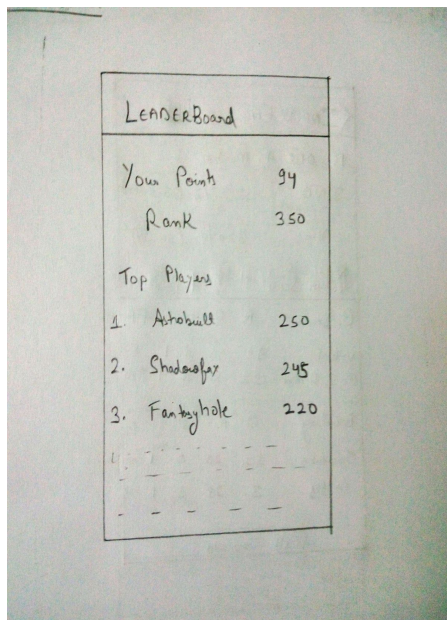 LEADERBoard
Your Points 94
Rank 350
Top Players
1. Astrobull 250
2. Shadowfax 245
3. Fantasyhole 220